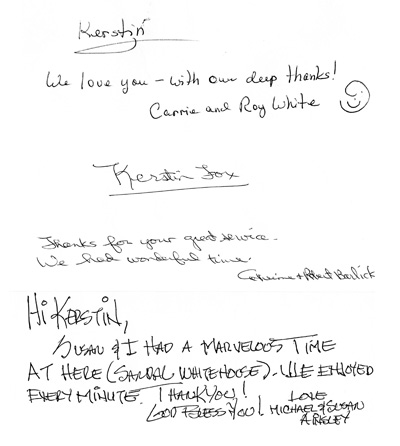 Kerstin
We love you - with our deep thanks!
Carrie and Roy White
Kerstin Fox
Thanks for your great service.
We had wonderful time.
+ Robert
HI KERSTIN,
SUSAN & I HAD A MARVELOUS TIME
AT HERE (SANDAL WHITEHOUSE) - WE ENJOYED
EVERY MINUTE. THANK YOU!
GOD BLESS YOU! LOVE
MICHAEL & SUSAN